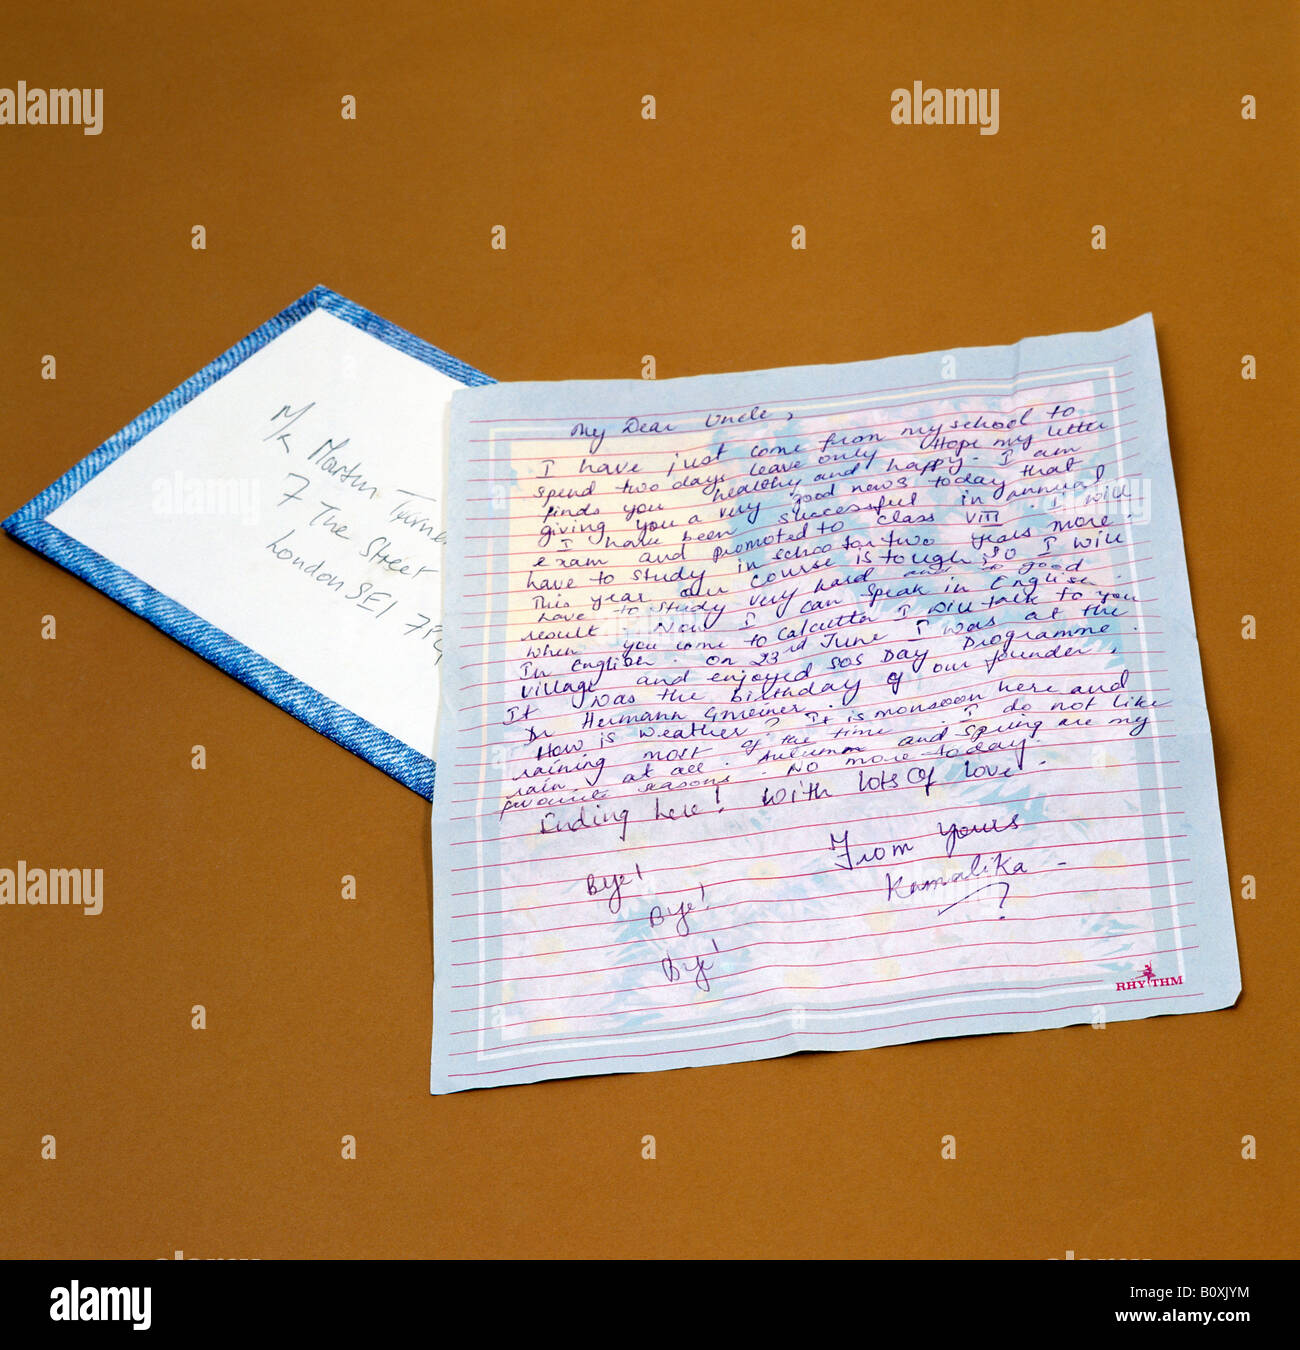 My Dear Uncle,
I have just come from my school to
spend two days leave only. Hope my letter
finds you healthy and happy. I am
giving you a very good news today that
I have been successful in annual
exam and promoted to class VIII. I will
have to study in school for two years more.
This year our course is tough. So I will
have to study very hard and to good
result. Now I can speak in English.
When you come to Calcutta I will talk to you
In English. On 23rd June I was at the
village and enjoyed SOS Day Programme.
It was the birthday of our founder,
Dr Hermann Gmeiner.
How is weather? It is monsoon here and
raining most of the time. I do not like
rain at all. Autumn and Spring are my
favourite seasons. No more today.
Ending here! With lots of love.
From yours
Kamalika
Bye!
Bye!
Bye!
RHYTHM
Martin Turner
7 The Street
London SE1
alamy
a
Image ID: B0XJYM
www.alamy.com